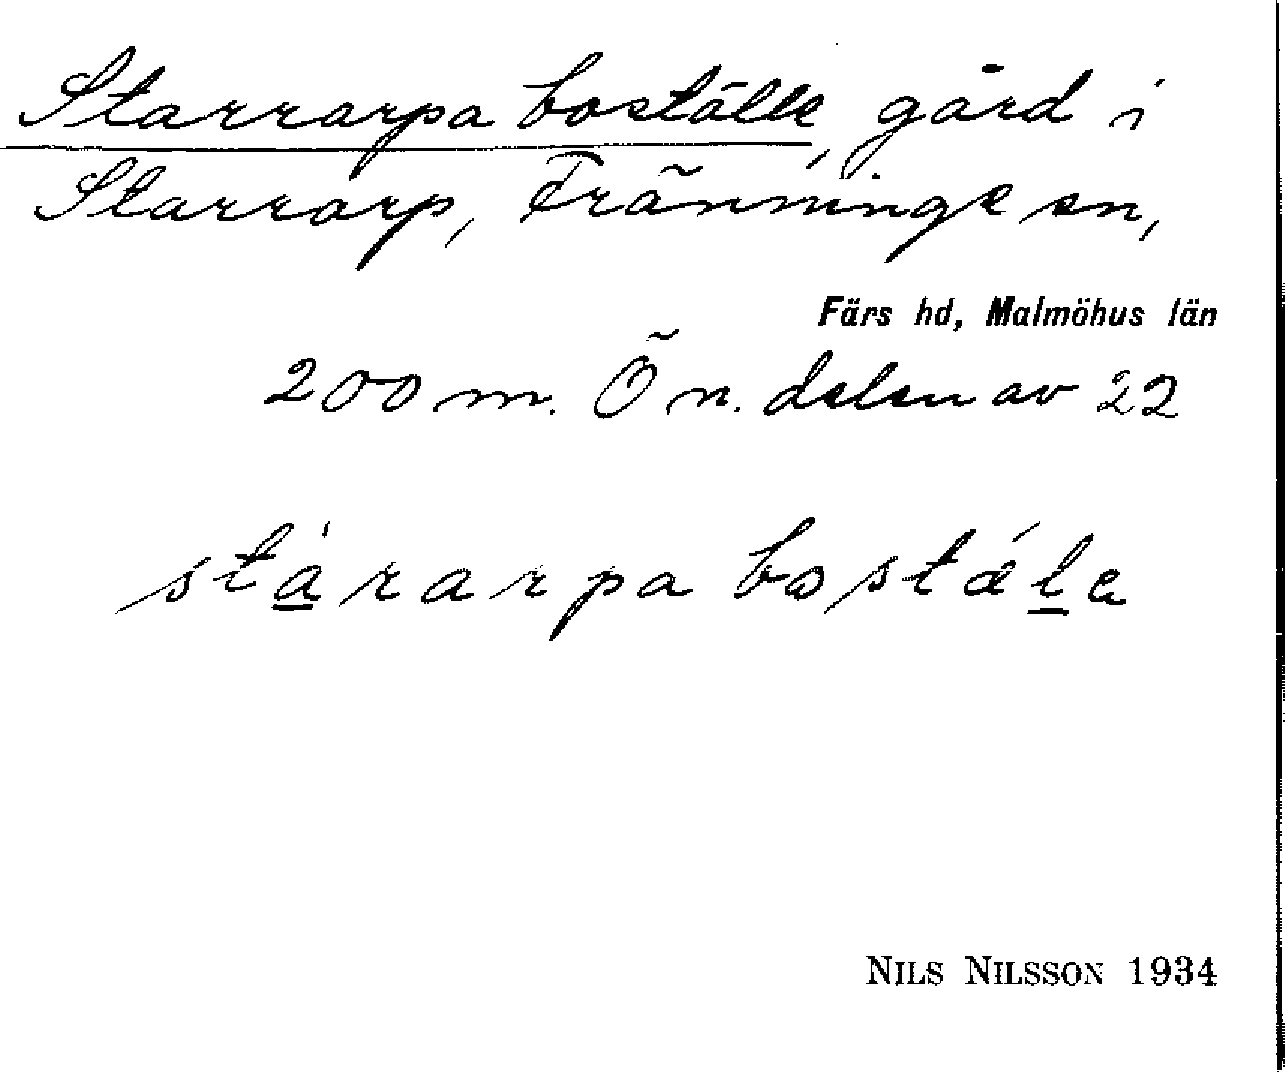 Starrarpa boställe, gård i
Starrarp, Fränninge sn,
Färs hd, Malmöhus län
200 m. Ö n. delen av 22
stàrarpa bostǽla
NILS NILSSON 1934